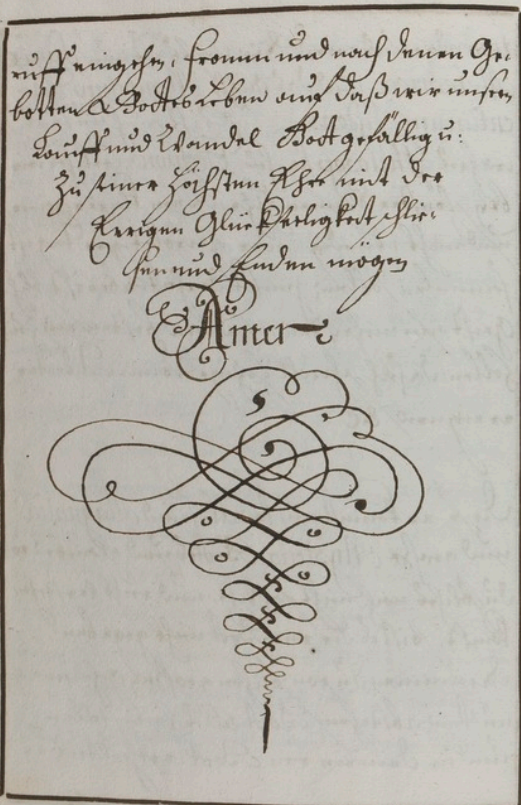 ruff eingehen, fromm und nach denen Ge-
botten Gottes Leben auf daß wir unsern
Lauff und Wandel Gott gefällig u:
Zu seiner Höchsten Ehre mit der
Ewigen Glückseeligkeit schlie-
sen und Enden mögen
Amen